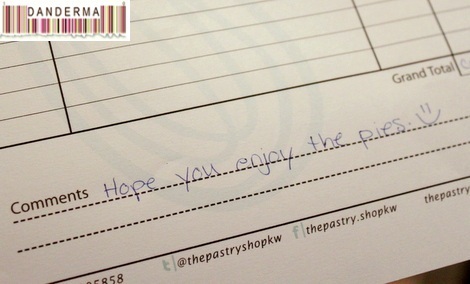 DANDERMA
Grand Total
Comments Hope you enjoy the pies.
5858
@thepastryshopkw
thepastry.shopkw
thepastry